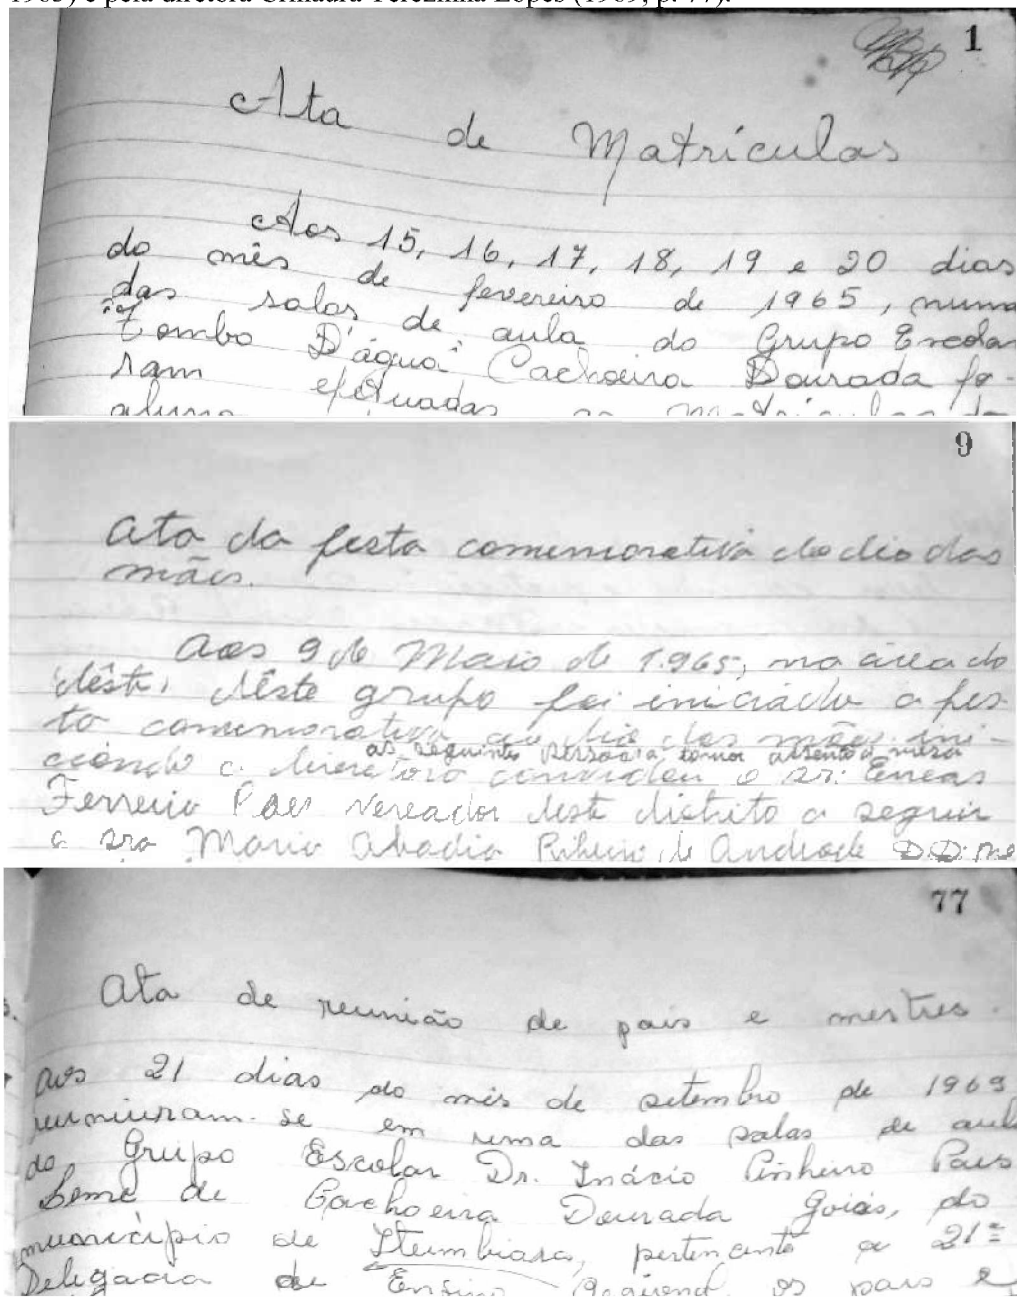 1
Ata de Matrículas
Aos 15, 16, 17, 18, 19 e 20 dias
do mês de fevereiro de 1965, numa
das salas de aula do Grupo Escolar
"Tombo D'água" Cachoeira Dourada fo-
ram efetuadas as matrículas
9
Ata da festa comemorativa do dia das
mães.
Aos 9 de Maio de 1.965, na área do
dêste, dêste grupo foi iniciado a fes-
ta comemorativa ao dia das mães. ini-
as seguinte pessoas a tomar assento á mesa
ciando a diretora convidou o sr: Eneas
Ferreira Paes Vereador deste distrito a seguir
a sra Maria Abadia Ribeiro de Andrade DD: me
77
Ata de reunião de pais e mestres.
aos 21 dias do mês de setembro de 1969
reuniuram-se em uma das salas de aula
do Grupo Escolar Dr. Inácio Pinheiro Paes
Leme de Cachoeira Dourada Goiás, do
município de Itumbiara, pertencente a 21ª
Delegacia de Ensino Regional, os pais e